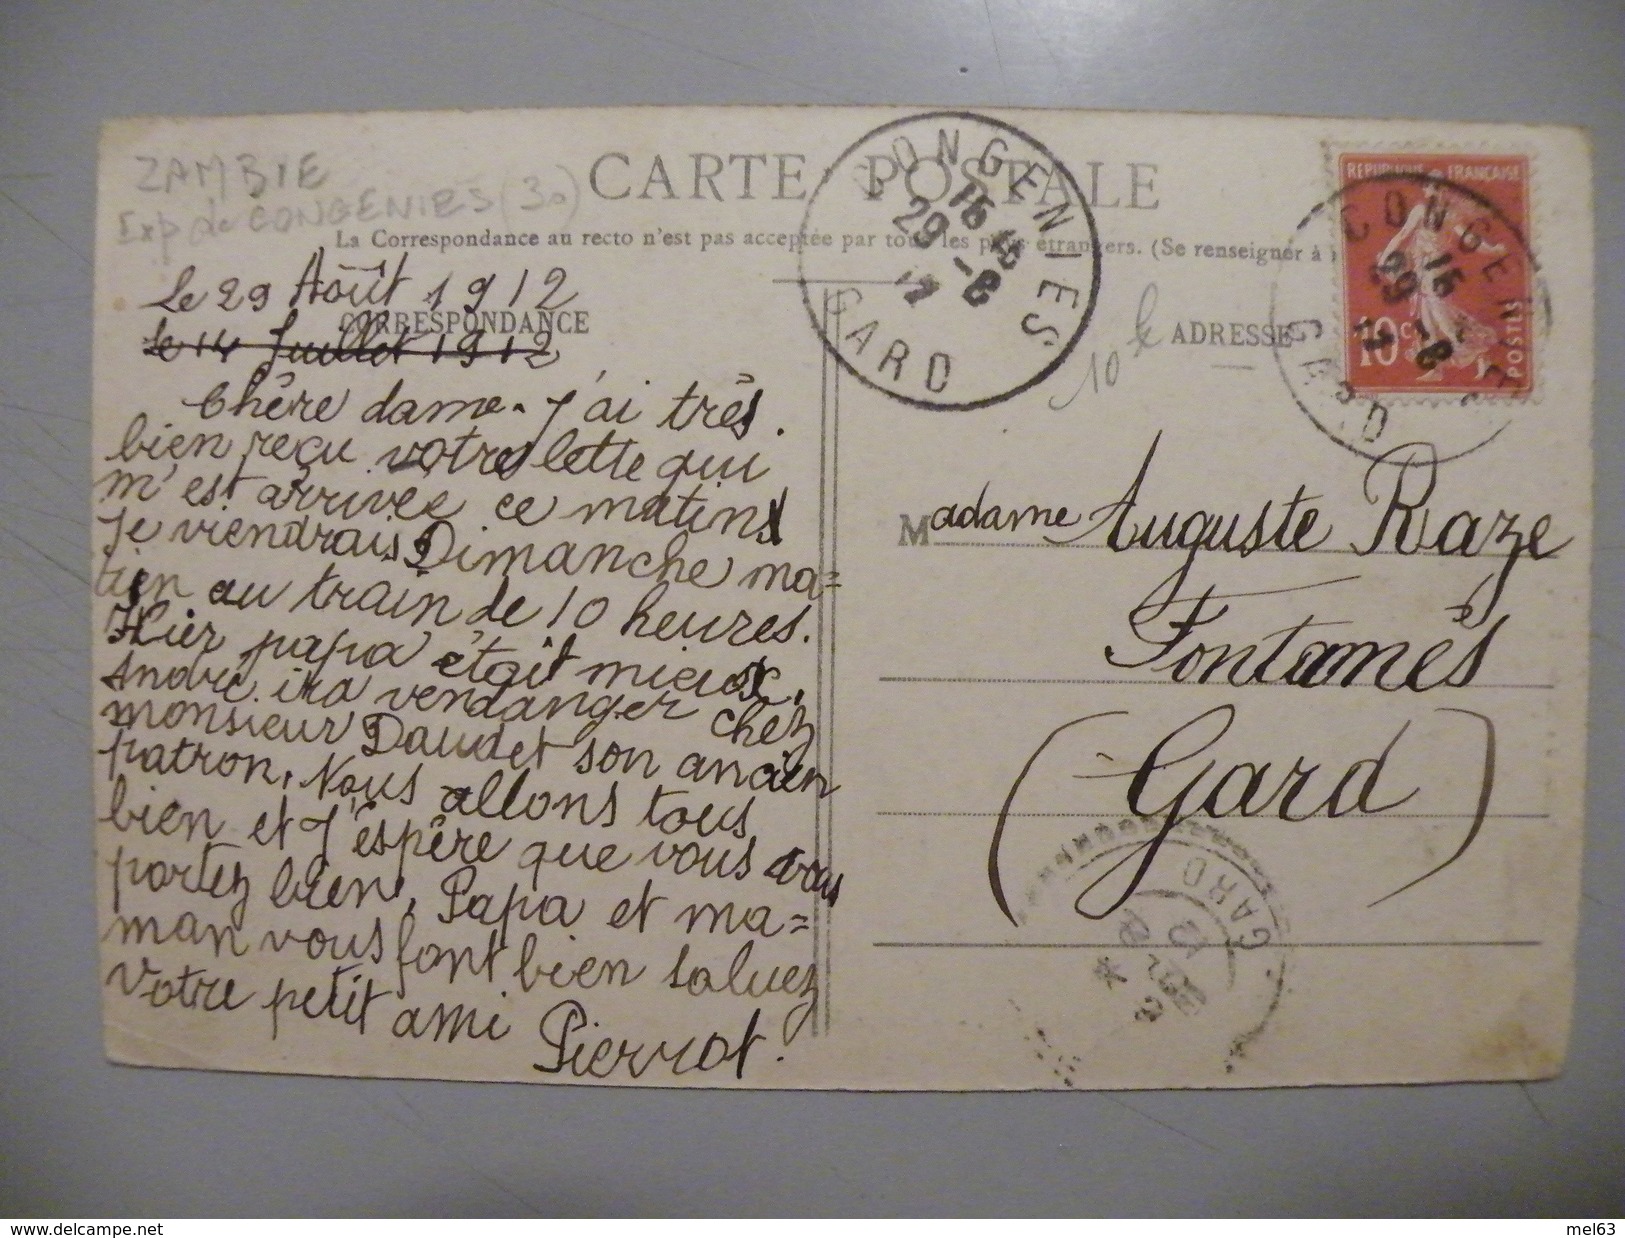 ZAMBIE
Exp de CONGENIES (30)
CARTE POSTALE
La Correspondance au recto n'est pas acceptée par tous les pays étrangers. (Se renseigner à
CORRESPONDANCE
Le 29 Août 1912
Le 14 Juillet 1912
Chère dame. J'ai très
bien reçu votre lette qui
m'est arrivée ce matin
Je viendrais Dimanche ma=
tien au train de 10 heures.
Hier papa était mieux,
André ira vendanger chez
monsieur Daudet son ancien
patron, Nous allons tous
bien et J'espère que vous vous
portez bien, Papa et ma=
man vous font bien saluez
Votre petit ami
Pierrot.
CONGENIES
15 15
29 -8
12
GARD
10 E
ADRESSE
REPUBLIQUE FRANCAISE
10 c
POSTES
CONGENIES
15
29 -8
12
GARD
Madame Auguste Raze
Fontanès
(Gard)
GARD
delcampe.net
mel63